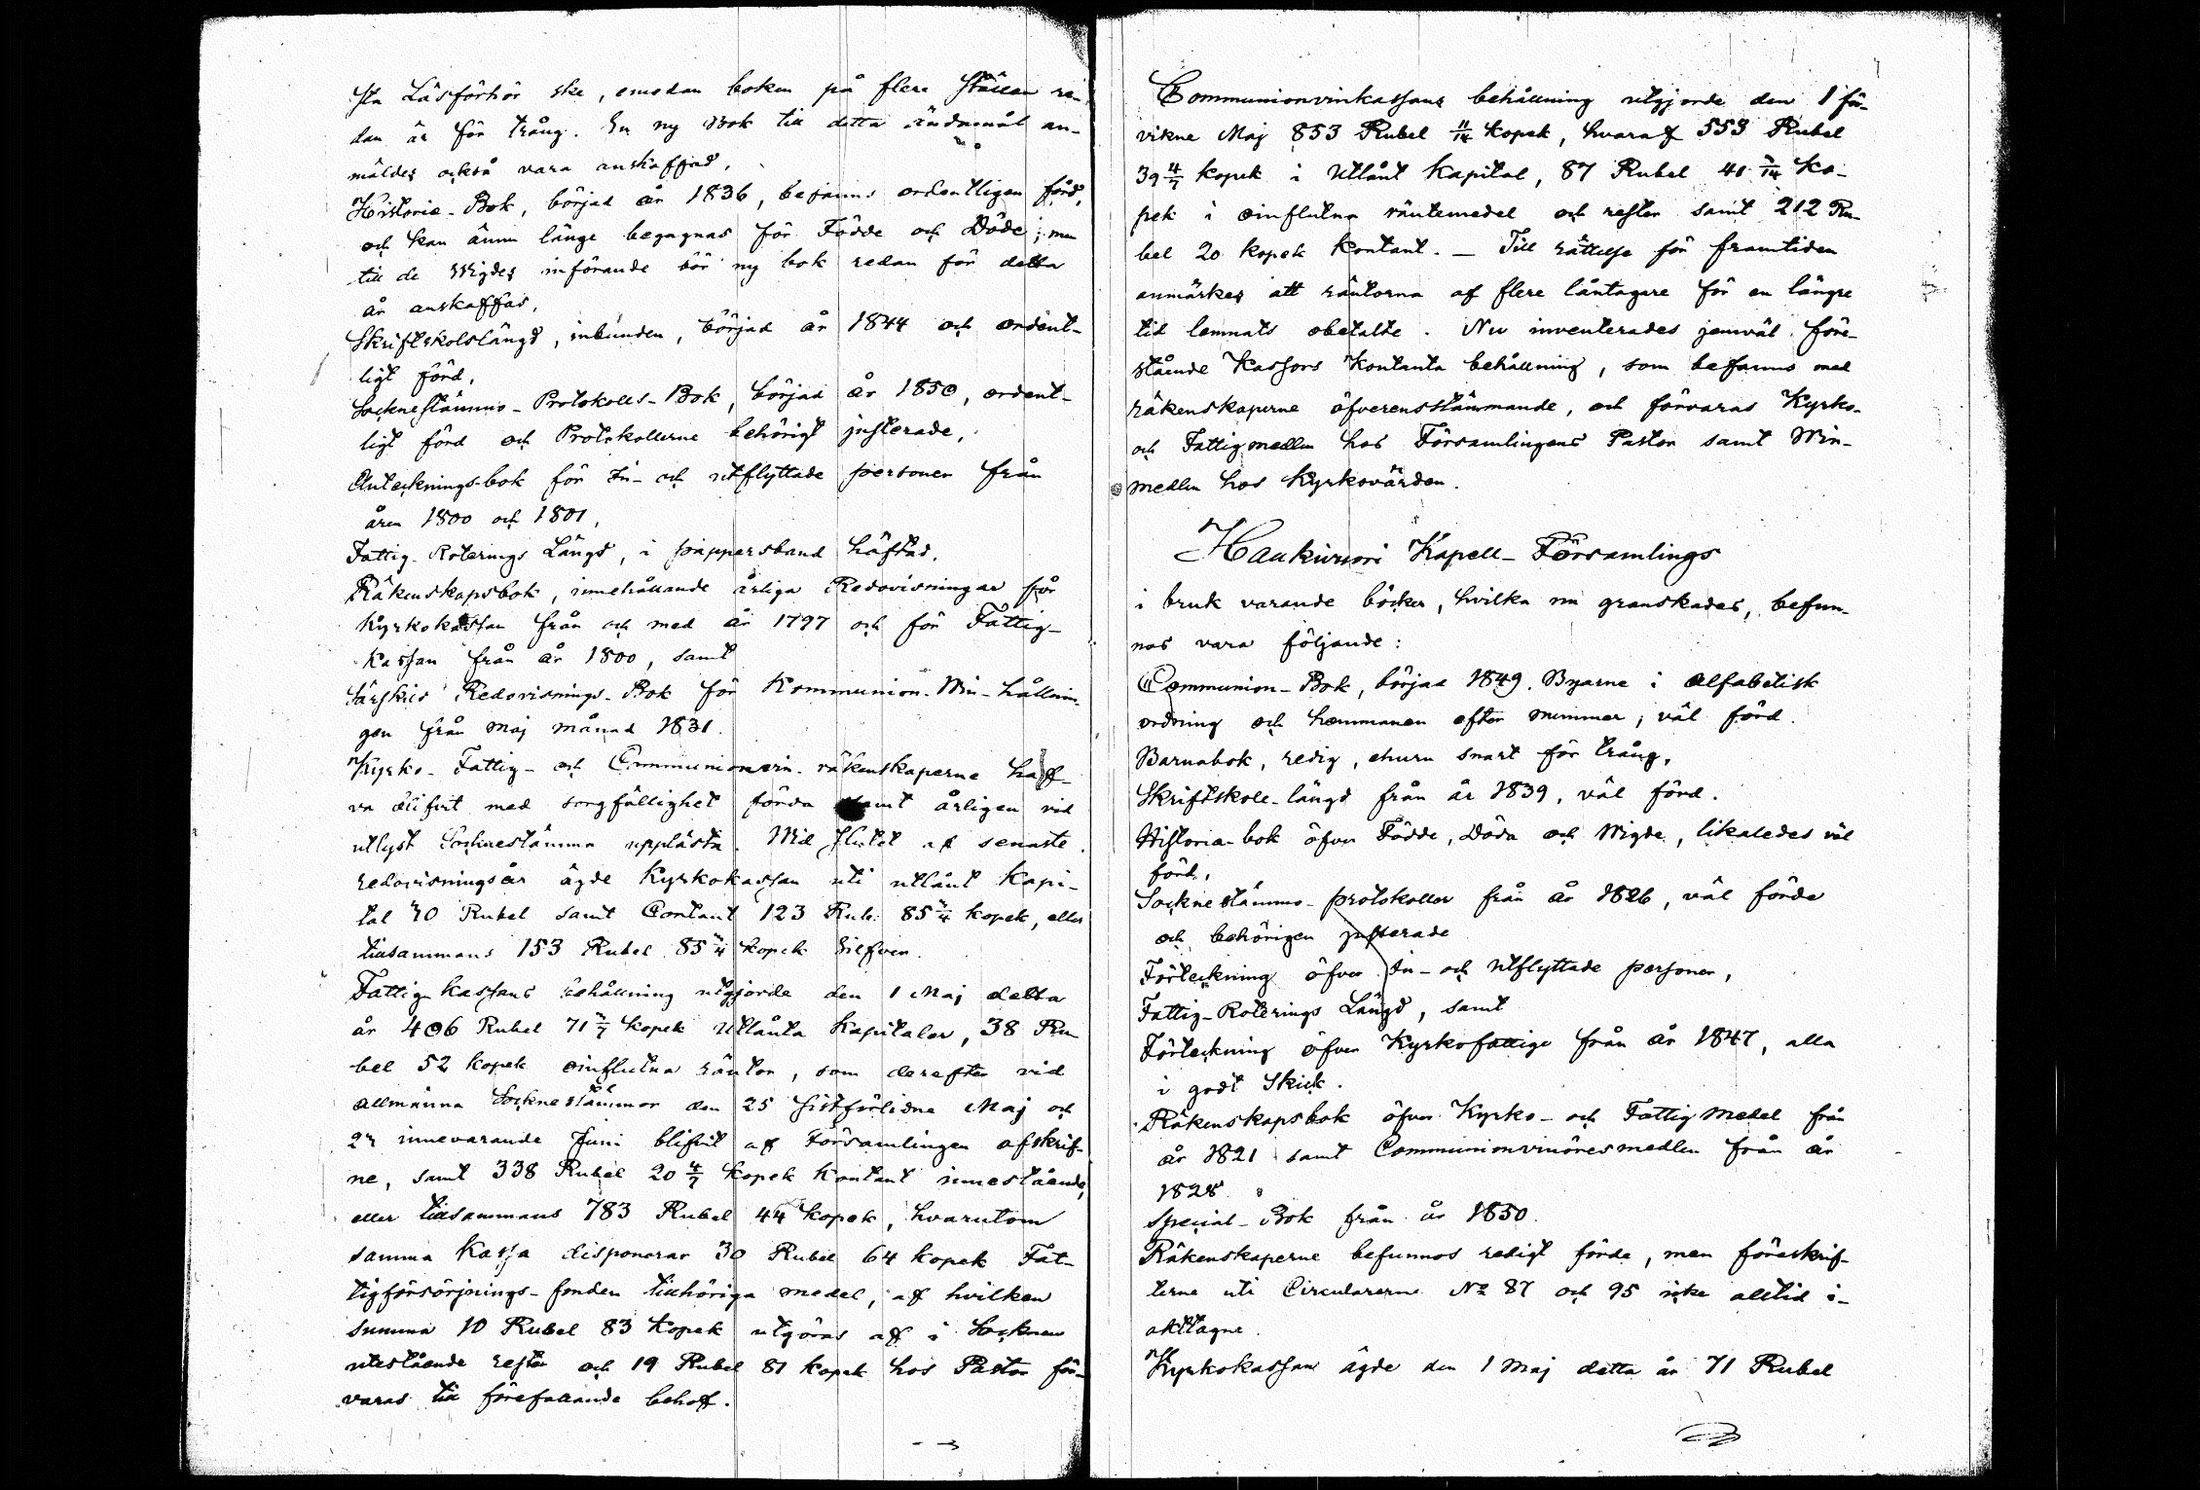 sta Läsförhör ske, emedan boken på flere ställen re-
dan är för trång. En ny Bok till detta ändamål an-
mäldes också vara anskaffad.
Historie-Bok, börjad år 1836, befanns ordentligen förd,
och kan ännu länge begagnas för Födde och Döde; men
till de Wigdes införande bör ny bok redan för detta
år anskaffas.
Skriftskolslängd, inbunden, börjad år 1844 och ordent-
ligt förd.
Sockenstämmo-Protokolls-Bok, börjad år 1850, ordent-
ligt förd och Protokollerne behörigt justerade.
Antecknings-bok för In- och utflyttade personer från
åren 1800 och 1801.
Fattig-Roterings Längd, i pappersband häftad.
Räkenskapsbok, innehållande årliga Redovisningar för
Kyrkokassan från och med år 1797 och för Fattig-
Kassan från år 1800, samt
Särskild Redovisnings-Bok för Kommunion-Win-hållnin-
gen från Maj månad 1831.
Kyrko- Fattig- och Communionvin-räkenskaperne haf-
va blifvit med sorgfällighet förda samt årligen vid
utlyst Sockenstämma upplästa. Vid slutet af senaste
redovisningsår ägde Kyrkokassan uti utlånt Kapi-
tal 30 Rubel samt Contant 123 Rub. 85 kopek, eller
tillsammans 153 Rubel 85 kopek Silfver.
Fattig-Kassans behållning utgjorde den 1 Maj detta
år 406 Rubel 71 5/7 kopek Utlånta Kapitaler, 38 Ru-
bel 52 kopek oinflutna räntor, som derefter vid
allmänna Sockenstämmor den 25 sistförlidne Maj och
innevarande Juni blifvit af Församlingen afskrif-
ne, samt 338 Rubel 20 4/7 kopek Kontant innestående,
eller tillsammans 783 Rubel 44 kopek, hvarutom
samma Kassa disponerar 30 Rubel 64 kopek Fat-
tigförsörjnings-fonden tillhöriga medel, af hvilken
summa 10 Rubel 83 kopek utgöras af i Socknen
utestående rester och 19 Rubel 81 kopek hos Pastor för-
varas till förefallande behof.
Communionvinkassans behållning utgjorde den 1 för-
vikne Maj 853 Rubel 11/14 kopek, hvaraf 553 Rubel
39 4/7 kopek i Utlånt Kapital, 87 Rubel 41 3/14 ko-
pek i oinflutna räntemedel och rester samt 212 Ru-
bel 20 kopek Kontant. — Till rättelse för framtiden
anmärkes att räntorna af flere låntagare för en längre
tid lemnats obetalte. Nu inventerades jemväl före-
stående Kassors Kontanta behållning, som befanns med
räkenskaperne öfverensstämmande, och förvaras Kyrko-
och Fattigmedlen hos Församlingens Pastor samt Win-
medlen hos Kyrkovärden.
Haukivuori Kapell-Församlings
i bruk varande böcker, hvilka nu granskades, befun-
nos vara följande:
Communion-Bok, börjad 1849. Byarne i alfabetisk
ordning och hemmanen efter nummer, väl förd.
Barnabok, redig, ehuru snart för trång.
Skriftskole-längd från år 1839, väl förd.
Historia-bok öfver Födde, Döda och Wigde, likaledes väl
förd.
Sockenstämmo-protokoller från år 1826, väl förde
och behörigen justerade
Förteckning öfver In- och Utflyttade personer,
Fattig-Roterings Längd, samt
Förteckning öfver Kyrkofattige från år 1847, alla
i godt Skick.
Räkenskapsbok öfver Kyrko- och Fattigmedel från
år 1821 samt Communionvinöresmedlen från år
1828.
Special-Bok från år 1850.
Räkenskaperne befunnos redigt förde, men föreskrif-
terne uti Circulärerne No 87 och 95 icke alltid i-
akttagne.
Kyrkokassan ägde den 1 Maj detta år 71 Rubel